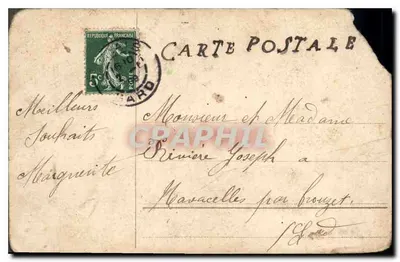 REPUBLIQUE FRANÇAISE
5c
GARD
CARTE POSTALE
Meilleurs
Souhaits
Marguerite
Monsieur et Madame
Rivière Joseph a
Navacelles par Brouzet
Gard
CPAPHIL